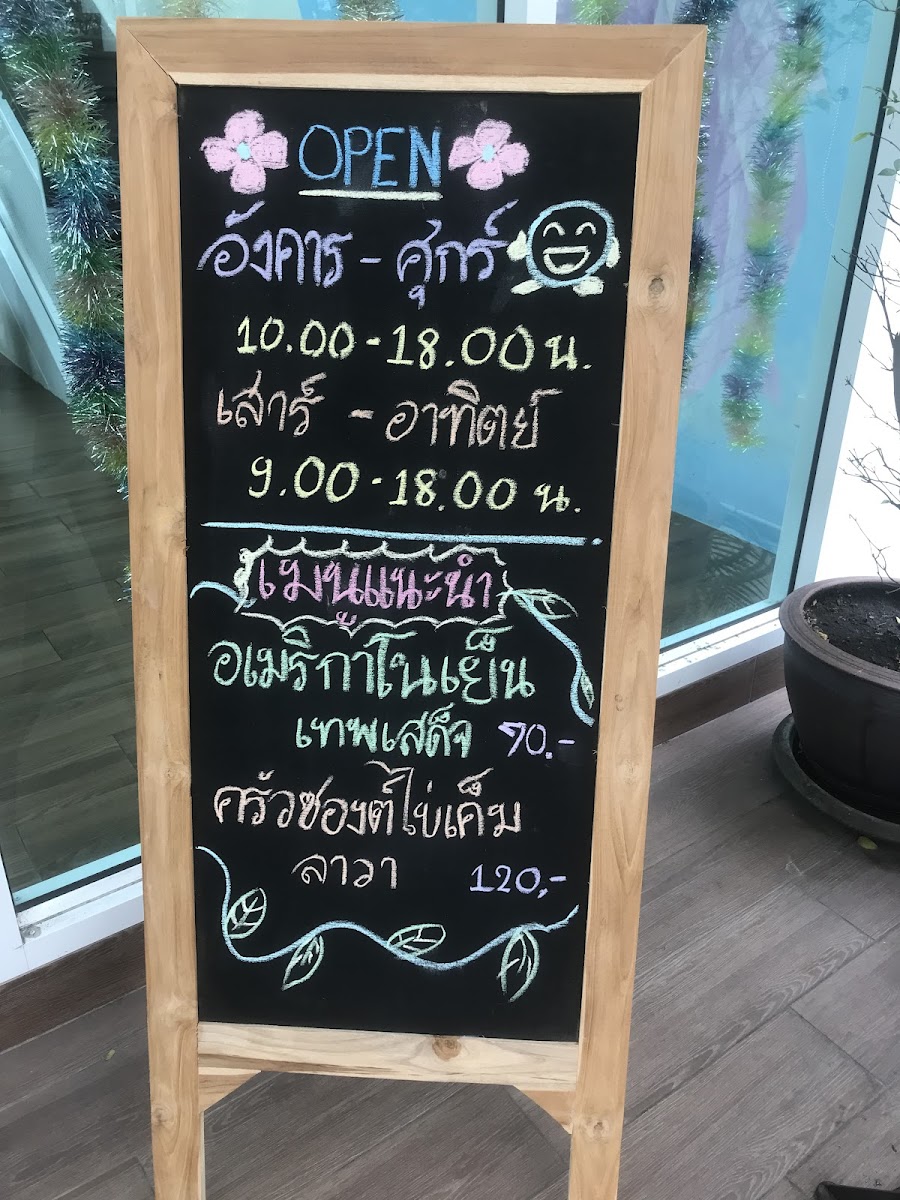 OPEN
อังคาร - ศุกร์
10.00 - 18.00 น.
เสาร์ - อาทิตย์
9.00 - 18.00 น.
เมนูแนะนำ
อเมริกาโนเย็น
เทพเสด็จ 70.-
ครัวซองต์ไข่เค็ม
ลาวา 120.-